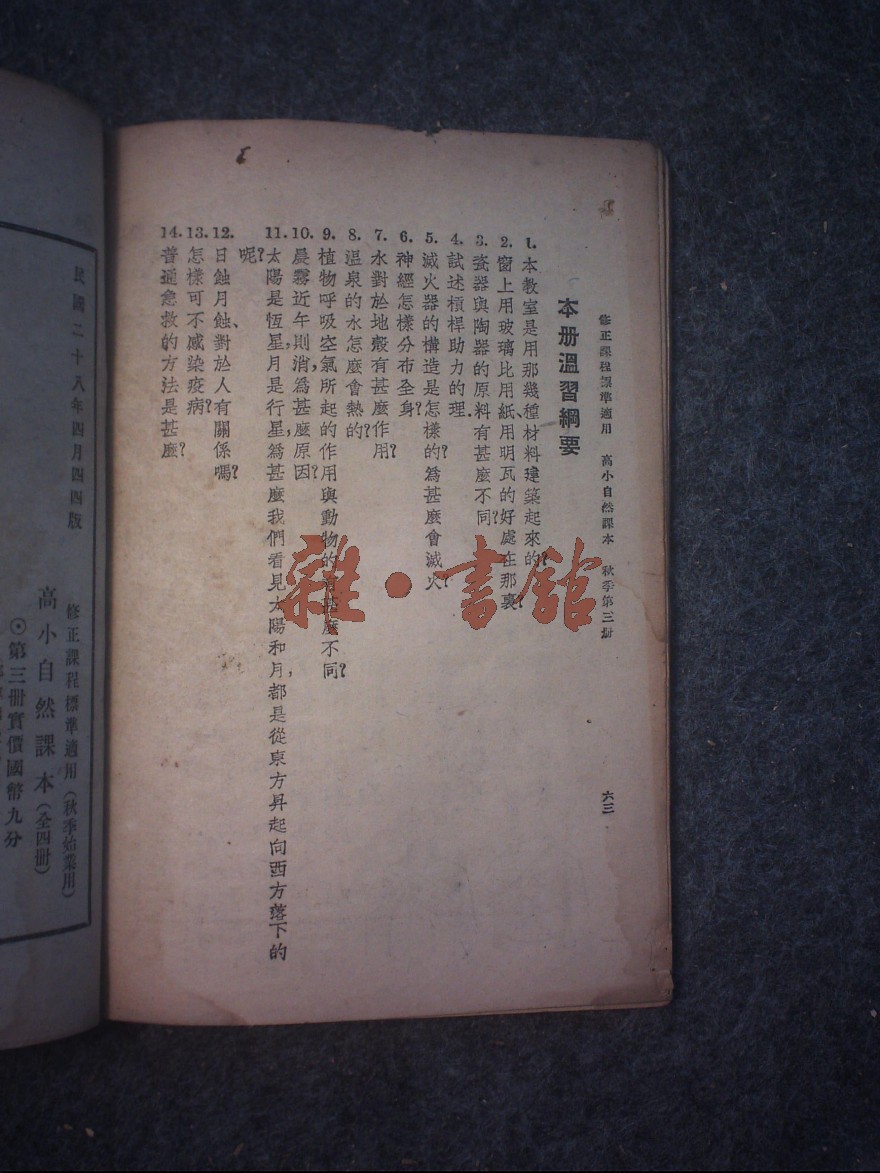 修正課程標準適用　高小自然課本　秋季第三册　六三
本册溫習綱要
1. 本教室是用那幾種材料建築起來的?
2. 窗上用玻璃比用紙、用明瓦的好處在那裏?
3. 瓷器與陶器的原料有甚麼不同?
4. 試述槓桿助力的理.
5. 滅火器的構造是怎樣的?爲甚麼會滅火?
6. 神經怎樣分布全身?
7. 水對於地殼有甚麼作用?
8. 溫泉的水怎麼會熱的?
9. 植物呼吸空氣所起的作用與動物的有甚麼不同?
10. 晨霧近午則消,爲甚麼原因?
11. 太陽是恆星,月是行星,爲甚麼我們看見太陽和月,都是從東方昇起向西方落下的
呢?
12. 日蝕、月蝕對於人有關係嗎?
13. 怎樣可不感染疫病?
14. 普通急救的方法是甚麼?
民國二十八年四月四四版
修正課程標準適用（秋季始業用）
高小自然課本（全四册）
⊙第三册實價國幣九分
雜·書館